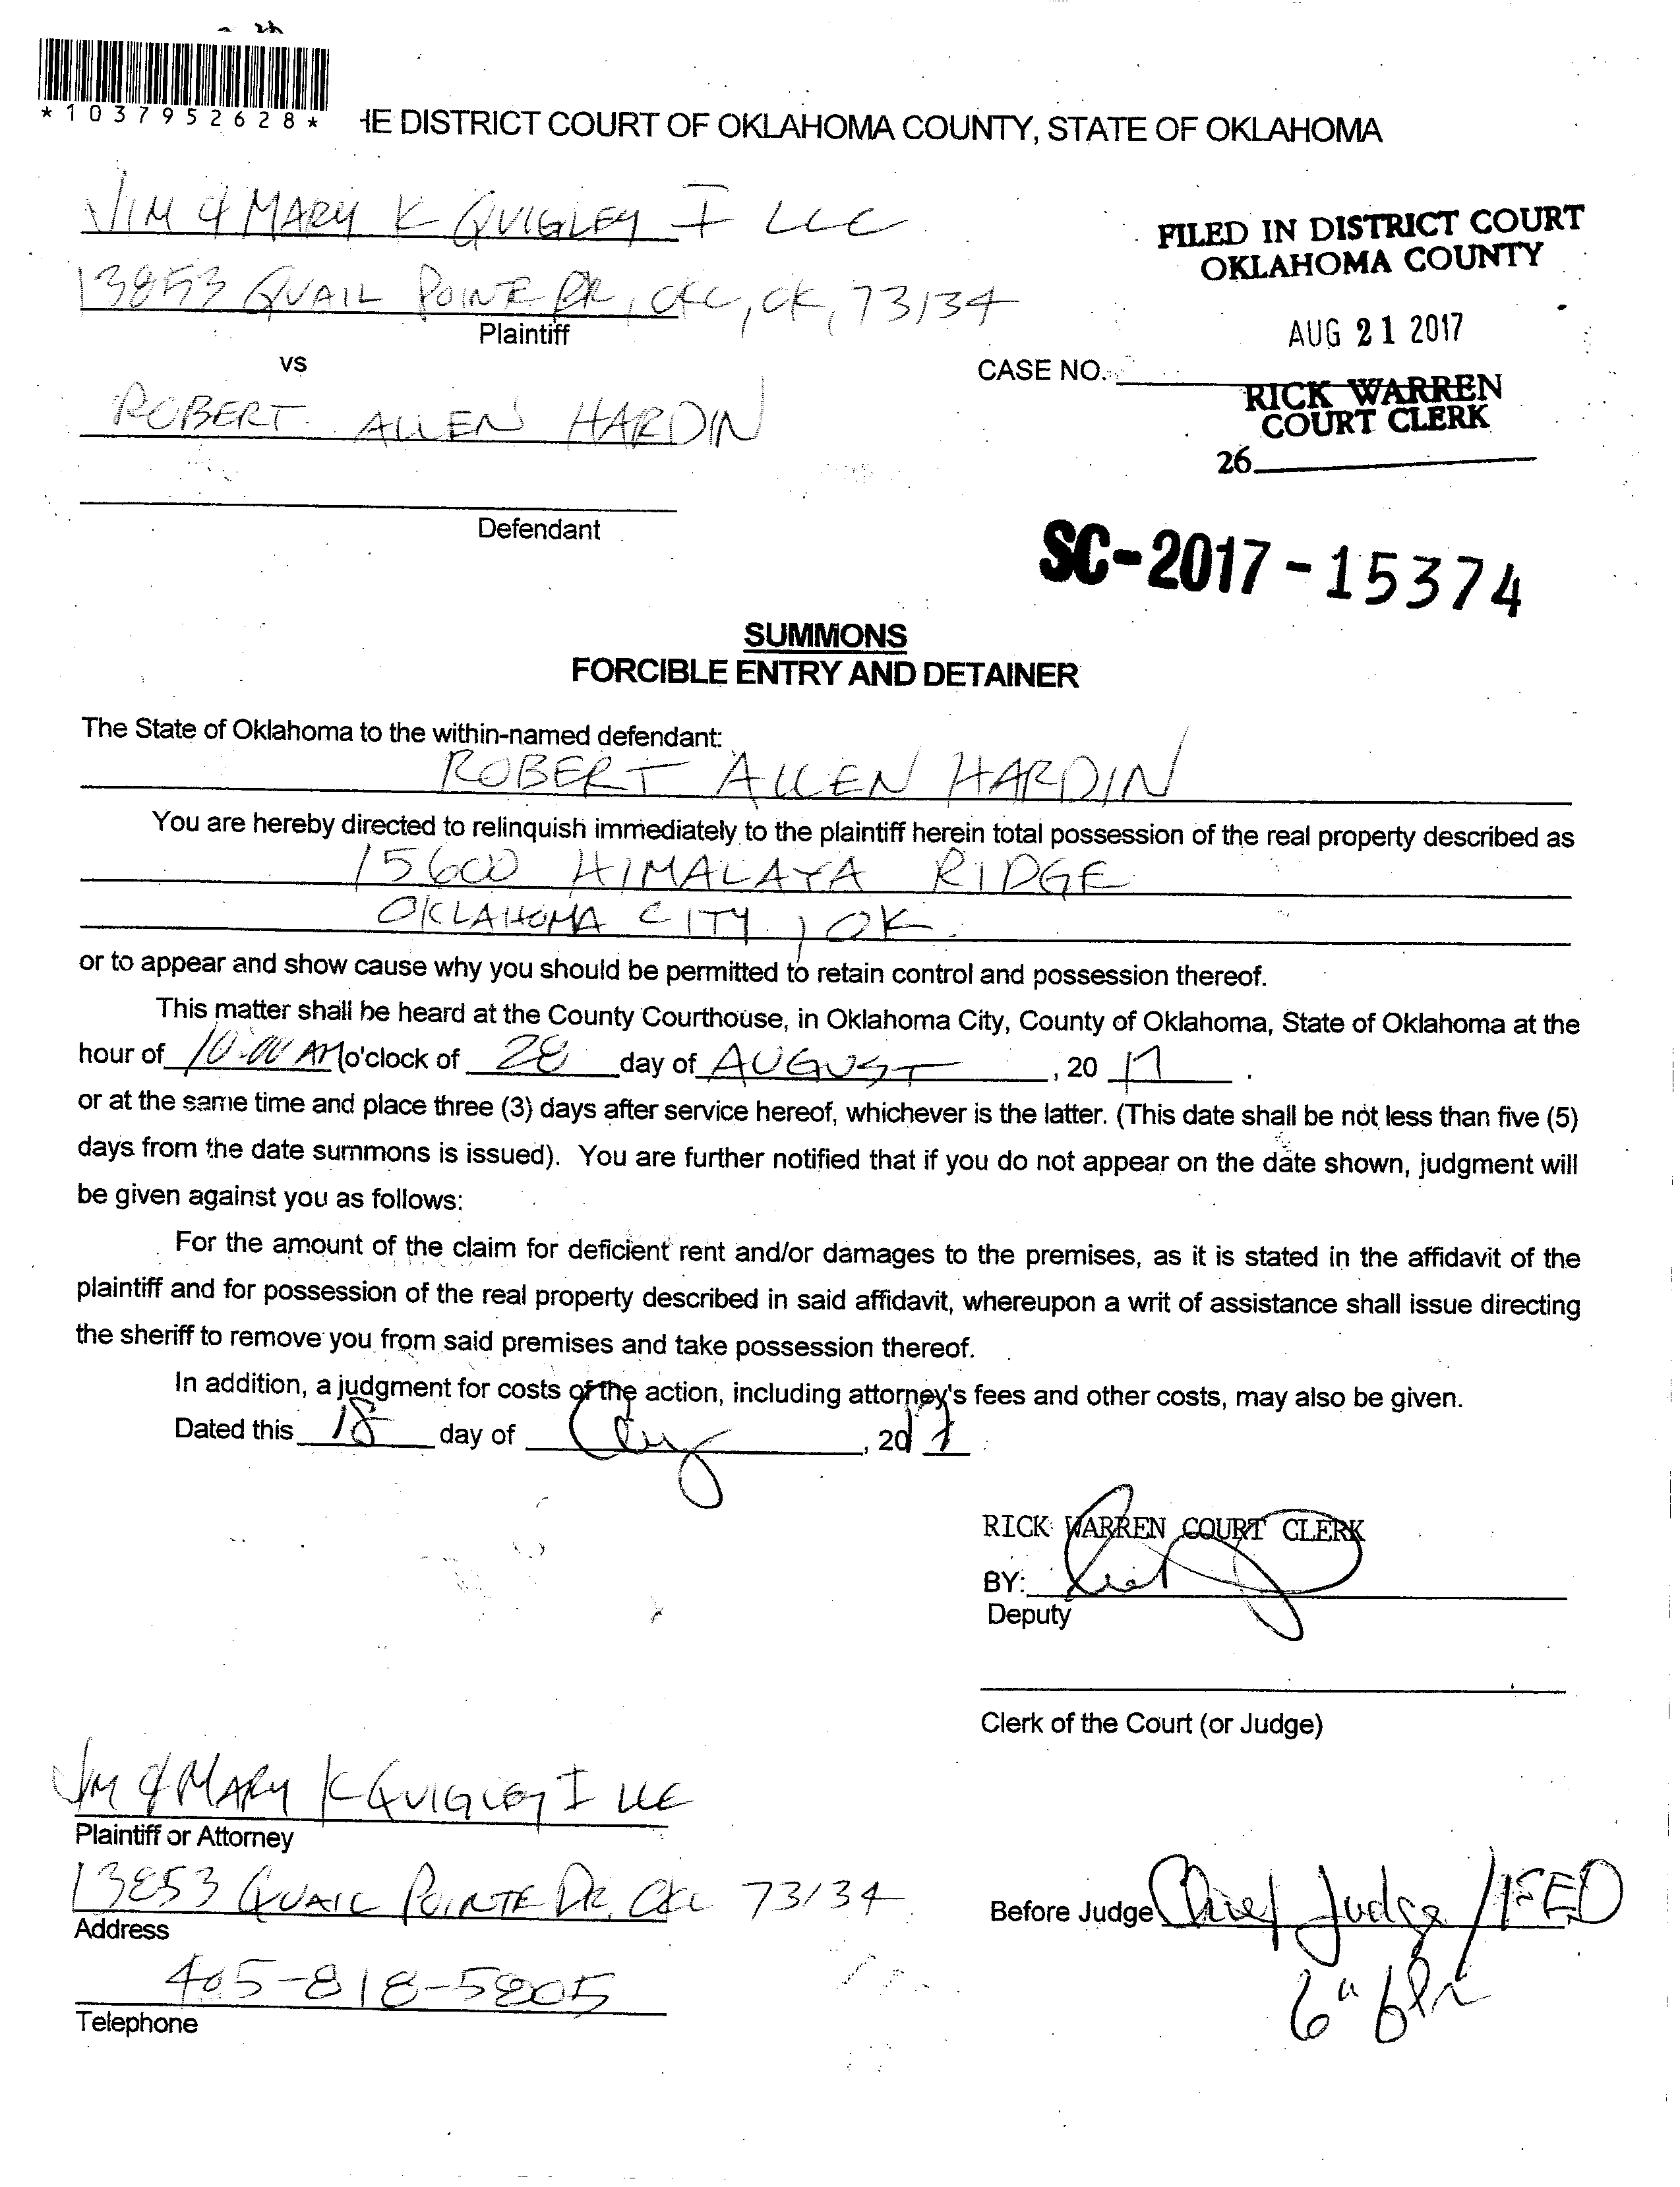 *1037952628*
HE DISTRICT COURT OF OKLAHOMA COUNTY, STATE OF OKLAHOMA
JIM & MARY K QUIGLEY I LLC
13853 QUAIL POINTE DR, OKC, OK, 73134
Plaintiff
vs
ROBERT ALLEN HARDIN
Defendant
FILED IN DISTRICT COURT
OKLAHOMA COUNTY
AUG 21 2017
CASE NO.
RICK WARREN
COURT CLERK
26
SC-2017-15374
SUMMONS
FORCIBLE ENTRY AND DETAINER
The State of Oklahoma to the within-named defendant:
ROBERT ALLEN HARDIN
You are hereby directed to relinquish immediately to the plaintiff herein total possession of the real property described as
15600 HIMALAYA RIDGE
OKLAHOMA CITY, OK.
or to appear and show cause why you should be permitted to retain control and possession thereof.
This matter shall be heard at the County Courthouse, in Oklahoma City, County of Oklahoma, State of Oklahoma at the
hour of 10:00 AM o'clock of 28 day of AUGUST, 20 17.
or at the same time and place three (3) days after service hereof, whichever is the latter. (This date shall be not less than five (5)
days from the date summons is issued). You are further notified that if you do not appear on the date shown, judgment will
be given against you as follows:
For the amount of the claim for deficient rent and/or damages to the premises, as it is stated in the affidavit of the
plaintiff and for possession of the real property described in said affidavit, whereupon a writ of assistance shall issue directing
the sheriff to remove you from said premises and take possession thereof.
In addition, a judgment for costs of the action, including attorney's fees and other costs, may also be given.
Dated this 18 day of Aug, 2017.
RICK WARREN COURT CLERK
BY:
Deputy
Clerk of the Court (or Judge)
JIM & MARY K QUIGLEY I LLC
Plaintiff or Attorney
13853 QUAIL POINTE DR, OKC 73134
Address
405-818-5805
Telephone
Before Judge Chief Judge/FED
6th flr